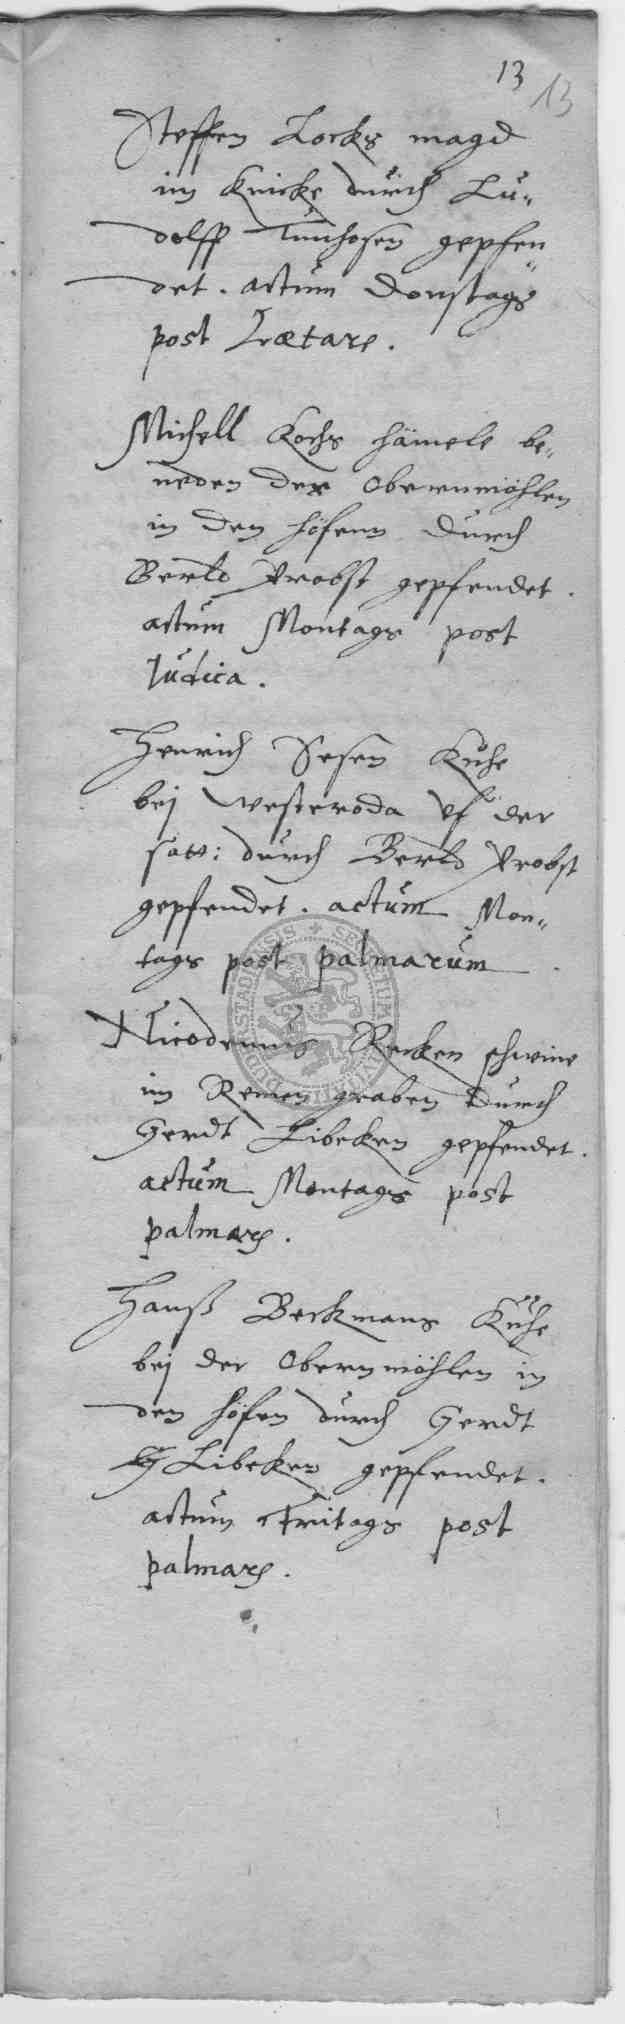 13 13
Steffen Kocks magd
im Knicke durch Lu„
dolff Tunhosen gepfen„
det. actum Donstags
post Lætare.
Michell Kochs hämele be„
neden der Obernmöhlen
in den höfenn durch
Berld Probst gepfendet.
actum Montags post
Judica.
Henrich Sesen Kuhe
bei westeroda uf der
satt: durch Berld Probst
gepfendet. actum Mon„
tags post palmarum
Nicodemus Recken schweine
im Remen graben durch
Gerdt Libeken gepfendet.
actum Montags post
palmar.
Hanß Beckmans Kühe
bei der Obernmöhlen in
den höfen durch Gerdt
Libeken gepfendet.
actum Fritags post
palmar.